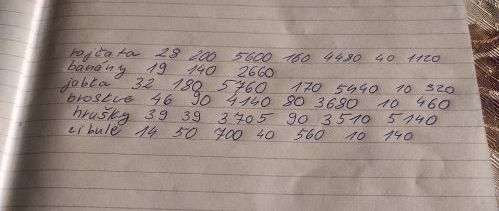 rajčata 28 200 5600 160 4480 40 1120
banány 19 140 2660
jabka 32 180 5760 170 5440 10 320
broskve 46 90 4140 80 3680 10 460
hrušky 39 39 3705 90 3510 5 140
cibule 14 50 700 40 560 10 140